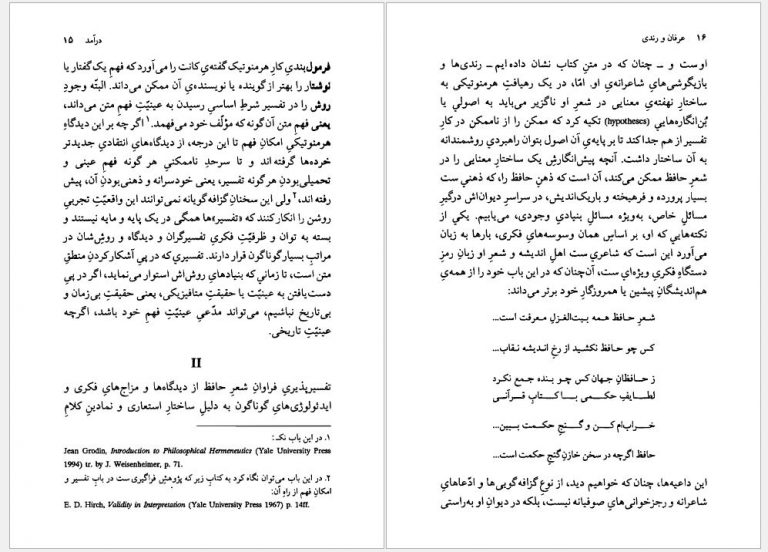 درآمد ۱۵
فرمول‌بندیِ کارِ هرمنوتیک گفته‌یِ کانت را می‌آورد که فهمِ یک گفتار یا
نوشتار را بهتر از گوینده یا نویسنده‌یِ آن ممکن می‌داند. البتّه وجودِ
روش را در تفسیر شرطِ اساسیِ رسیدن به عینیّتِ فهمِ متن می‌داند،
یعنی فهمِ متن آن‌گونه که مؤلّف خود می‌فهمد.۱ اگرچه بر این دیدگاهِ
هرمنوتیکیِ امکانِ فهم تا این درجه، از دیدگاه‌هایِ انتقادیِ جدیدتر
خرده‌ها گرفته‌اند و تا سرحدِ ناممکنیِ هر گونه فهمِ عینی و
تحمیلی‌بودنِ هر گونه تفسیر، یعنی خودسرانه و ذهنی‌بودنِ آن، پیش
رفته‌اند،۲ ولی این سخنانِ گزافه‌گویانه نمی‌توانند این واقعیّتِ تجربیِ
روشن را انکار کنند که «تفسیر»ها همگی در یک پایه و مایه نیستند و
بسته به توان و ظرفیّتِ فکریِ تفسیرگران و دیدگاه و روشِ‌شان در
مراتبِ بسیار گوناگون قرار دارند. تفسیری که در پیِ آشکارکردنِ منطقِ
متن است، تا زمانی که بنیادهایِ روش‌اش استوار می‌نماید، اگر در پیِ
دست‌یافتن به عینیّت یا حقیقتِ متافیزیکی، یعنی حقیقتِ بی‌زمان و
بی‌تاریخ نباشیم، می‌تواند مدّعیِ عینیّتِ فهمِ خود باشد، اگرچه
عینیّتِ تاریخی.
II
تفسیرپذیریِ فراوانِ شعرِ حافظ از دیدگاه‌ها و مزاج‌هایِ فکری و
ایدئولوژی‌هایِ گوناگون به دلیلِ ساختارِ استعاری و نمادینِ کلامِ
۱. در این باب نک:
Jean Grodin, Introduction to Philosophical Hermeneutics (Yale University Press
1994) tr. by J. Weisenheimer, p. 71.
۲. در این باب می‌توان نگاه کرد به کتابِ زیر که پژوهشِ فراگیری ست در بابِ تفسیر و
امکانِ فهم از راهِ آن:
E. D. Hirch, Validity in Interpretation (Yale University Press 1967) p. 14ff.
۱۶ عرفان و رندی
او ست و ــ چنان که در متنِ کتاب نشان داده‌ایم ــ رندی‌ها و
بازیگوشی‌هایِ شاعرانه‌یِ او. امّا، در یک رهیافتِ هرمنوتیکی به
ساختارِ نهفته‌یِ معنایی در شعرِ او ناگزیر می‌باید به اصولی یا
بُن‌انگاره‌هایی (hypotheses) تکیه کرد که ممکن را از ناممکن در کارِ
تفسیر از هم جدا کند تا بر پایه‌یِ آن اصول بتوان راهبردی روشمندانه
به آن ساختار داشت. آنچه پیش‌انگارشِ یک ساختارِ معنایی را در
شعرِ حافظ ممکن می‌کند، آن است که ذهنِ حافظ را، که ذهنی ست
بسیار پرورده و فرهیخته و باریک‌اندیش، در سراسرِ دیوان‌اش درگیرِ
مسائلِ خاص، به‌ویژه مسائلِ بنیادیِ وجودی، می‌یابیم. یکی از
نکته‌هایی که او، بر اساسِ همان وسوسه‌هایِ فکری، بارها به زبان
می‌آورد این است که شاعری ست اهلِ اندیشه و شعرِ او زبانِ رمزِ
دستگاهِ فکریِ ویژه‌ای ست، آن‌چنان که در این باب خود را از همه‌یِ
هم‌اندیشگانِ پیشین یا همروزگارِ خود برتر می‌داند:
شعرِ حافظ همه بیت‌الغزلِ معرفت است...
کس چو حافظ نکشید از رخِ اندیشه نقاب...
ز حافظانِ جهان کس چو بنده جمع نکرد
لطایفِ حکمی با کتابِ قرآنی
خراب‌ام کن و گنجِ حکمت ببین...
حافظ اگرچه در سخن خازنِ گنجِ حکمت است...
این داعیه‌ها، چنان که خواهیم دید، از نوعِ گزافه‌گویی‌ها و ادّعاهایِ
شاعرانه و رجزخوانی‌هایِ صوفیانه نیست، بلکه در دیوانِ او به‌راستی